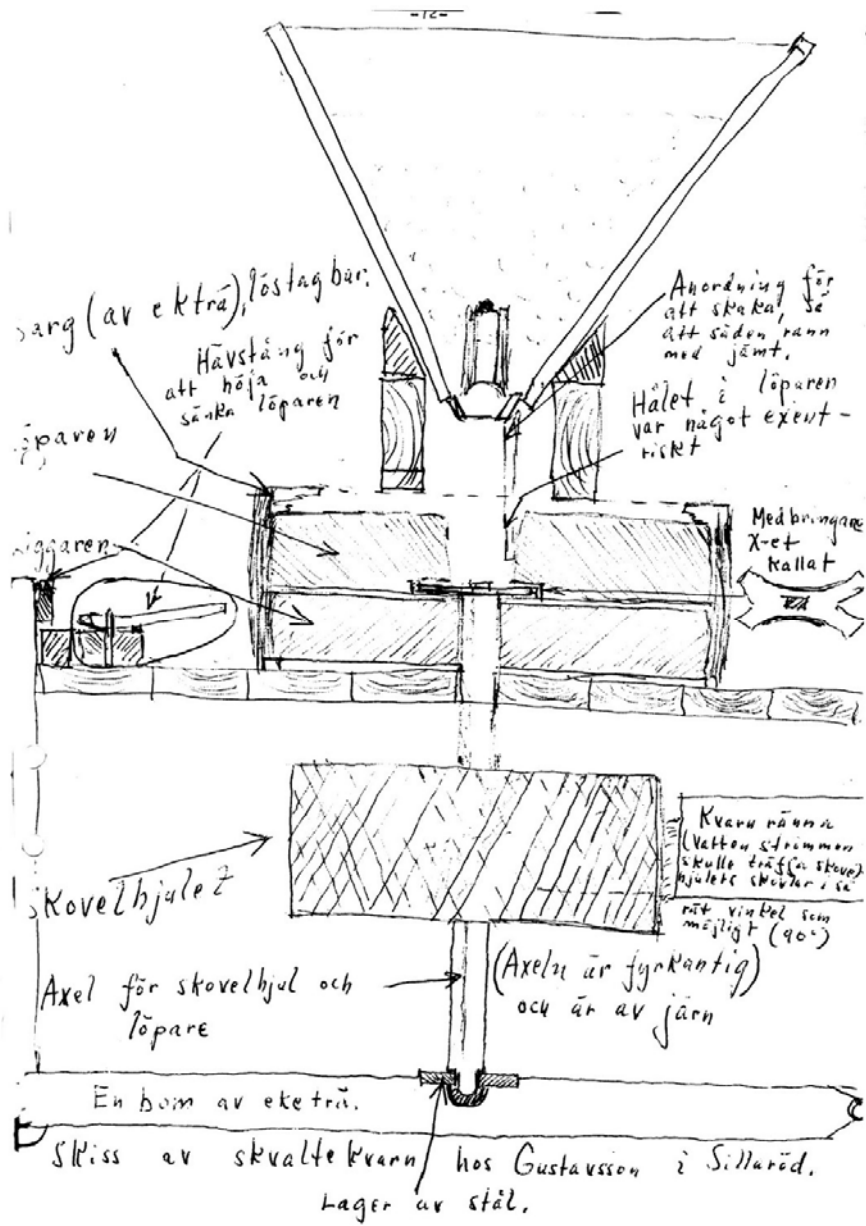 -12-
Sarg (av ekträ), löstagbar.
Hävstång för
att höja och
sänka löparen
Anordning för
att skaka, så
att säden rann
ned jämt.
Hålet i löparen
var något exent-
riskt
Löparen
Liggaren
Medbringare
X-et
kallat
Skovelhjulet
Kvarn ränna
(Vatten strimmen
skulle träffa skovel
hjulets skovlar i så
rät vinkel som
möjligt (90°)
Axel för skovelhjul och
löpare
(Axeln är fyrkantig)
och är av järn
En bom av eketrä.
Skiss av skvaltekvarn hos Gustavsson i Sillaröd.
Lager av stål.